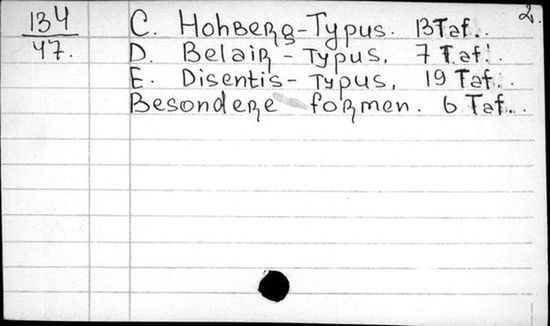 2.
134
47.
C. Hohberg-Typus. 13 Taf..
D. Belair - Typus, 7 Taf.
E. Disentis - Typus, 19 Taf.
Besondere formen. 6 Taf..